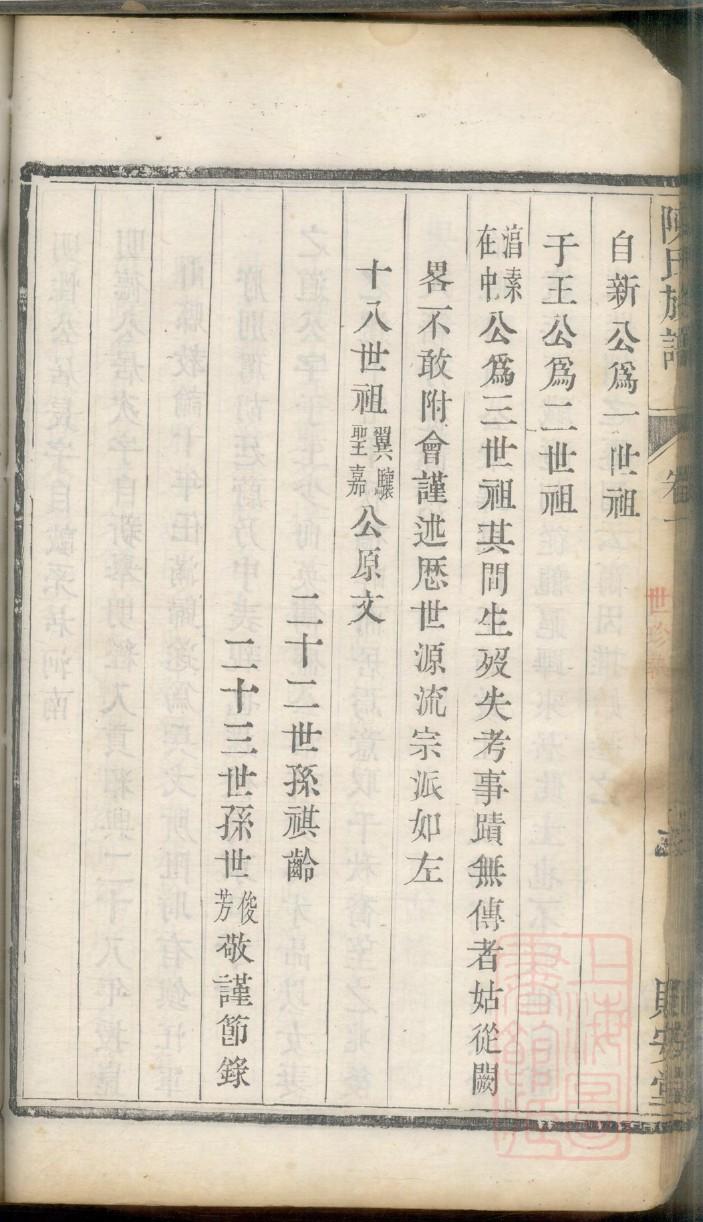 陳氏族譜 卷一
自新公爲一世祖
于王公爲二世祖
涫素在中公爲三世祖其間生歿失考事蹟無傳者姑從闕
畧不敢附會謹述厯世源流宗派如左
十八世祖翼驤聖嘉公原文
二十二世孫祺齡
二十三世孫世俊芳敬謹節錄
上海圖書館藏